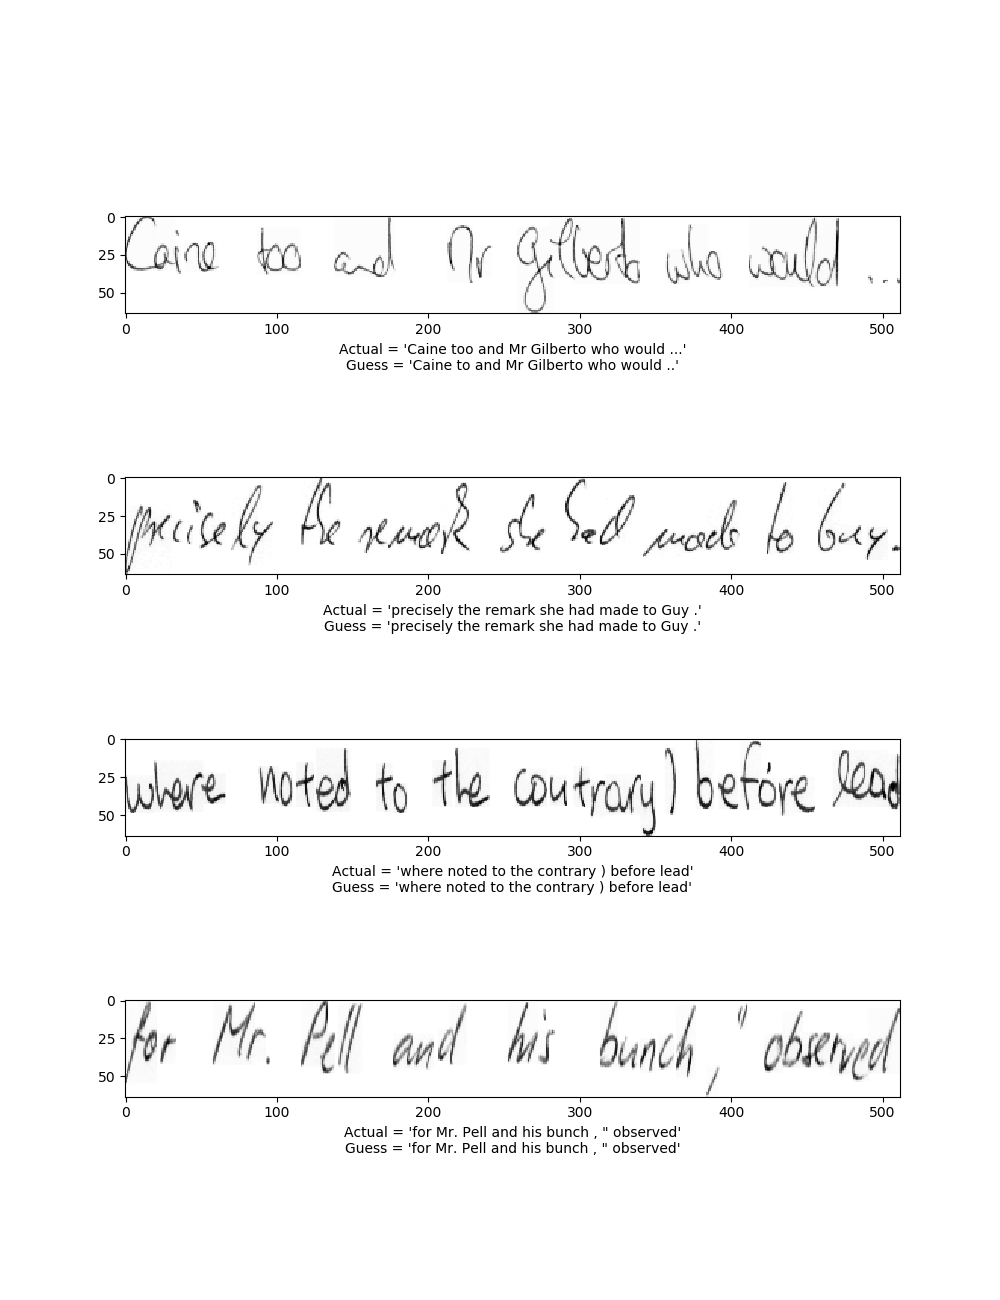 0
25
50
Caine too and Mr Gilberto who would ...
0 100 200 300 400 500
Actual = 'Caine too and Mr Gilberto who would ...'
Guess = 'Caine to and Mr Gilberto who would ..'
0
25
50
precisely the remark she had made to Guy.
0 100 200 300 400 500
Actual = 'precisely the remark she had made to Guy .'
Guess = 'precisely the remark she had made to Guy .'
0
25
50
where noted to the contrary) before lead
0 100 200 300 400 500
Actual = 'where noted to the contrary ) before lead'
Guess = 'where noted to the contrary ) before lead'
0
25
50
for Mr. Pell and his bunch, " observed
0 100 200 300 400 500
Actual = 'for Mr. Pell and his bunch , " observed'
Guess = 'for Mr. Pell and his bunch , " observed'